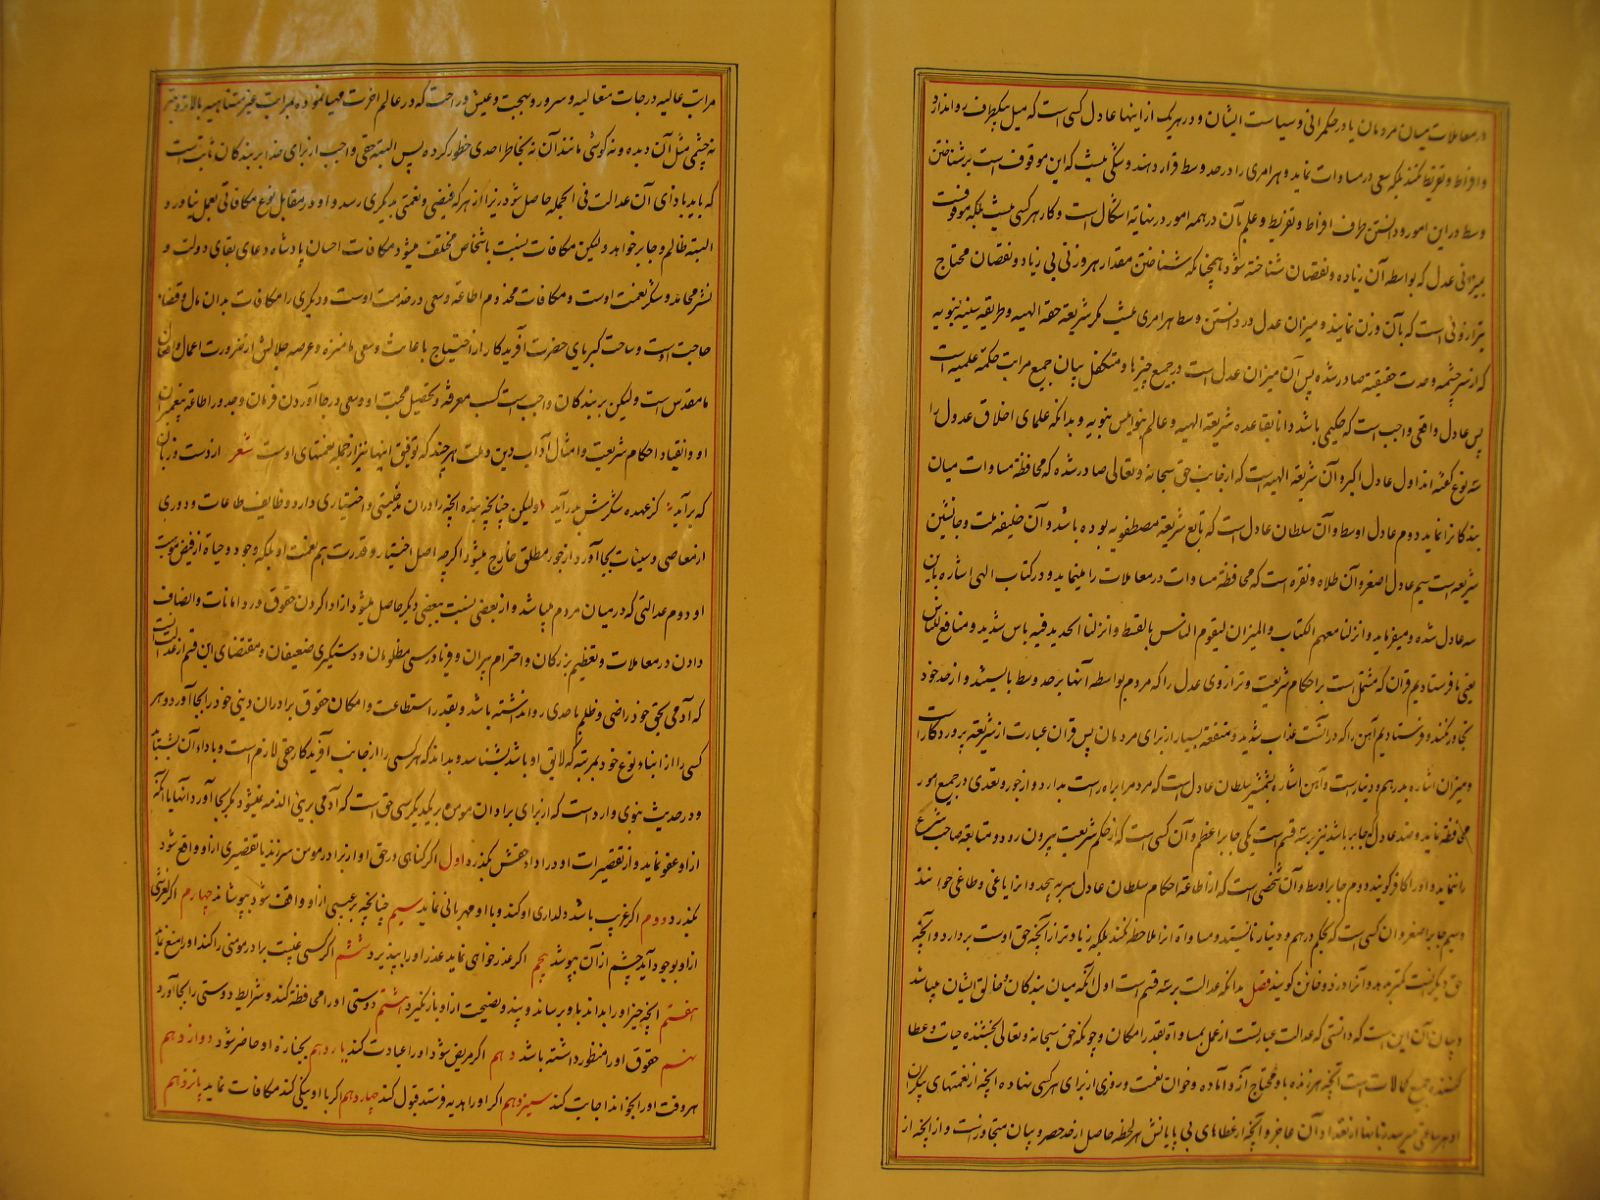 در معاملات میان مردمان یا در حکمرانی و سیاست ایشان و در هر یک از اینها عادل کسی است که میل بیکطرف روا ندارد
و افراط و تفریط نکند بلکه سعی در مساوات نماید و هر امری را در حد وسط قرار دهد و شکی نیست که این موقوف است بر شناختن
وسط در این امور و دانستن طرف افراط و تفریط و علم بآن در همه امور در نهایة اشکال است و کار هر کسی نیست بلکه موقوفست
بمیزانی عدل که بواسطه آن زیاده و نقصان شناخته شود همچنانکه شناختن مقدار هر وزنی بی زیاد و نقصان محتاج
بترازوئی است که بآن وزن نمایند و میزان عدل در دانستن وسط هر امری نیست مگر شریعة حقه الهیه و طریقه سنیه نبویه
که از سرچشمه وحدت حقیقیة صادر شده پس آن میزان عدل است در جمیع چیزها و متکفل بیان جمیع مراتب حکمة علمیه است
پس عادل واقعی واجب است که حکیمی باشد دانا بقاعده شریعة الهیه و عالم بنوامیس نبویه و بدانکه علمای اخلاق عدول را
سه نوع گفته اند اول عادل اکبر و آن شریعة الهیه است که از جانب حق سبحانه و تعالی صادر شده که محافظة مساوات میان
بندگانرا نماید دوم عادل اوسط و آن سلطان عادل است که تابع شریعة مصطفویه بوده باشد و آن خلیفه ملت و جانشین
شریعه است سیم عادل اصغر و آن طلا و نقره است که محافظة مساوات در معاملات را مینماید و در کتاب الهی اشاره باین
سه عادل شده و میفرماید و انزلنا معهم الکتاب و المیزان لیقوم الناس بالقسط و انزلنا الحدید فیه باس شدید و منافع للناس
یعنی ما فرستادیم قران که مشتمل است بر احکام شریعت و ترازوی عدل را که مردم بواسطه آنها بر حد وسط بایستند و از حد خود
تجاوز نکنند و فرستادیم آهن را که در آنست عذاب شدید و منفعة بسیار از برای مردمان پس قران عبارت از شریعة پروردگار است
و میزان اشاره بدرهم و دینار است و آهن اشاره بشمشیر سلطان عادل است که مردم را براه راست بدارد و از جور و تعدی در جمیع امور
محافظه نماید و ضد عادل که جابر باشد نیز بر سه قسم است یکی جابر اعظم و آن کسی است که از حکم شریعت بیرون رود و متابعة صاحب شرع
را ننماید و او را کافر گویند دوم جابر اوسط و آن شخصی است که از اطاعة احکام سلطان عادل سر بپیچد و او را یاغی و طاغی خوانند
و سیم جابر اصغر و ان کسی است که بحکم درهم و دینار نایستد و مساواة انرا ملاحظه نکند بلکه زیادتر از آنچه حق اوست بردارد و آنچه
حق دیگریست کمتر بدهد و آنرا دزد و خائن گویند فصل بدانکه عدالت بر سه قسم است اول آنکه میان بندگان و خالق ایشان میباشد
و بیان آن این است که دانستی که عدالت عبارتست از عمل بمساواة بقدر امکان و چونکه حق سبحانه و تعالی بخشنده حیات و عطا
کننده جمیع کمالات است آنچه هر زنده باو محتاج از او آماده و خوان نعمت و روزی از برای هر کسی نهاده آنچه از نعمتهای بیکران
او هر ساعتی میرسد زبانها از تعداد آن عاجز و آنچه از عطاهای بی پایانش هر لحظه حاصل از حد حصر و بیان متجاوز است و از آنچه از
مراتب عالیه و درجات متعالیه و سرور و بهجت و عیش و راحت که در عالم اخرت مهیا نموده بمراتب غیر متناهیه بالاتر و بهتر
نه چشمی مثل آن دیده و نه گوشی مانند آن نه بخاطر احدی خطور کرده پس البته حقی واجب از برای خدا بر بندگان ثابت است
که باید بادای آن عدالت فی الجمله حاصل شود زیرا که از هر که فیضی و نعمتی بدیگری رسد و او در مقابل نوع مکافاتی بعمل نیاورد
البته ظالم و جابر خواهد ولیکن مکافات نسبت باشخاص مختلف میشود مکافات احسان پادشاه دعای بقای دولت و
نشر محامد و شکر نعمت اوست و مکافات مخدوم اطاعة و سعی در خدمت اوست و دیگری را مکافات بدان مال و قضاء
حاجت اوست و ساحت کبریای حضرت آفریدگار از احتیاج باعانت و سعی ما منزه و عرصه جلالش از ضرورت اعمال و افعال
ما مقدس است ولیکن بر بندگان واجب است کسب معرفة و تحصیل محبت او و سعی در بجا آوردن فرمان و جد در اطاعة پیغمبران
او و انقیاد احکام شریعت و امثال آداب دین و ملت هر چند که توفیق اینها نیز از جمله نعمتهای اوست شعر از دست و زبان
که برآید کز عهده شکرش بدر آید ولیکن چنانچه بنده آنچه را در ان مدخلیتی و اختیاری دارد و وظایف طاعات و دوری
از معاصی و سیئات بجا آورد از جور مطلق خارج میشود اگرچه اصل اختیار و قدرت هم نعمت او بلکه وجود و حیاة از فیض موهبت
او دوم عدالتی که در میان مردم میباشد و از بعضی نسبت ببعضی دیگر حاصل میشود از ادا کردن حقوق و رد امانات و انصاف
دادن در معاملات و تعظیم بزرگان و احترام پیران و فریادرسی مظلومان و دستگیری ضعیفان و مقتضای این قسم از عدالت آنست
که آدمی بحق خود راضی و ظلم باحدی روا نداشته باشد و بقدر استطاعت و امکان حقوق برادران دینی خود را بجا آورد و هر
کسی را از ابناء نوع خود بمرتبه که لایق او باشد بشناسد و بداند که هر کسی را از جانب آفریدگار حقی لازم است و باداء آن بشتابد
و در حدیث نبوی وارد است که از برای برادران مومن بر یکدیگر سی حق است که آدمی برئ الذمه نمیشود مگر بجا آورد آنها یا آنکه
از او عفو نماید و از تقصیرات او در ادا حقش بگذرد اول اگر گناهی در حق او از برادر مومن سر زند یا تقصیری از او واقع شود
بگذرد دوم اگر غریب باشد دلداری او کند و با او مهربانی نماید سیم چنانچه بر عیبی از او واقف شود بپوشاند چهارم اگر لغزشی
از او بوجود آید چشم از آن بپوشد پنجم اگر عذرخواهی نماید عذر او را بپذیرد ششم اگر کسی غیبت برادر مومنی را کند او را منع نماید
هفتم آنچه خیر او را بداند باو برساند و پند و نصیحت از او باز نگیرد هشتم دوستی او را محافظة کند و شرایط دوستی را بجا آورد
نهم حقوق او را منظور داشته باشد دهم اگر مریض شود او را عیادت کند یازدهم بجنازه او حاضر شود دوازدهم
هر وقت او را بخواند اجابت کند سیزدهم اگر او را هدیه فرستد قبول کند چهاردهم اگر با او نیکی کند مکافات نماید پانزدهم